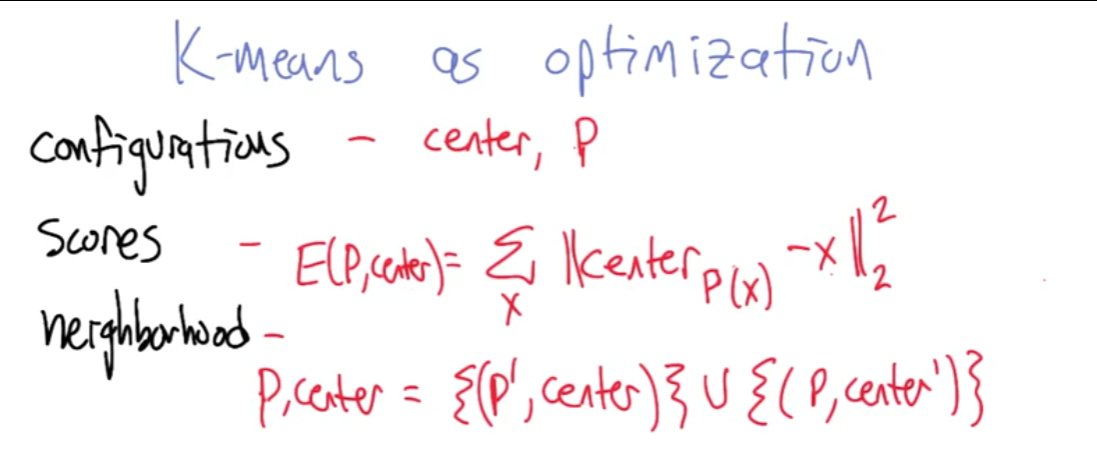 K-means as optimization
configurations - center, P
Scores - E(P,center)= Σ_x ||center_P(x) - x||₂²
neighborhood -
P,center = {(P', center)} ∪ {(P, center')}